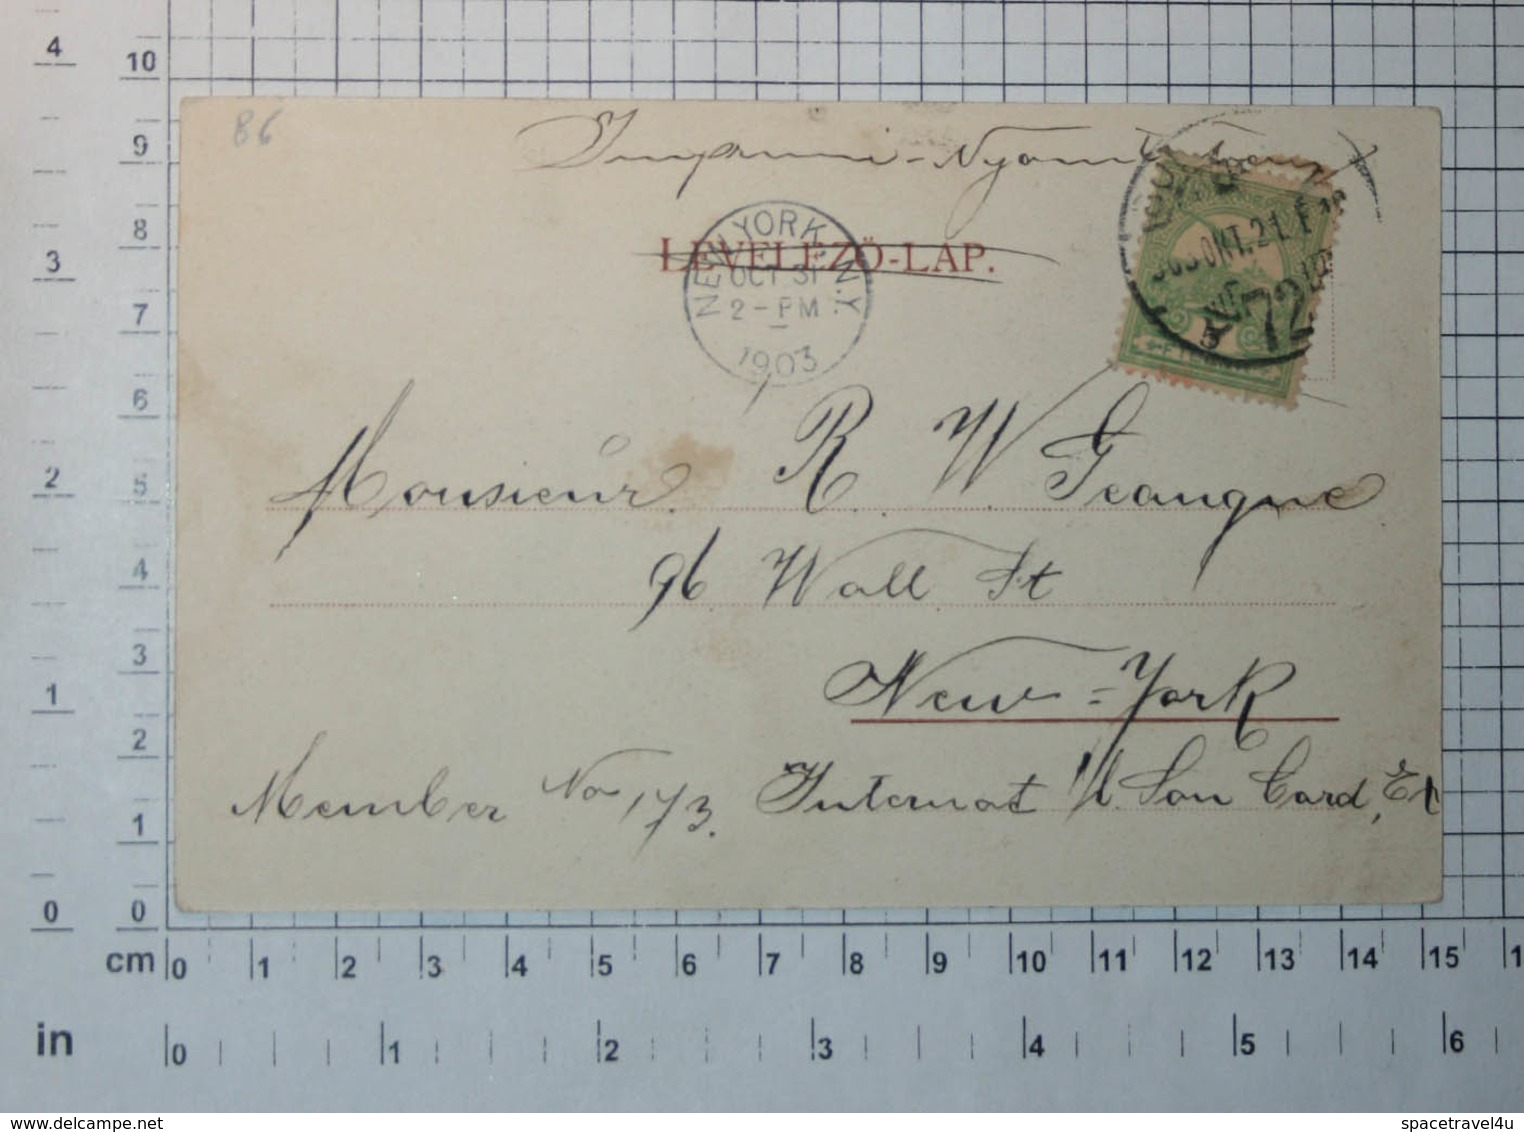 86
Imprimé - Nyomtatvány
LEVELEZŐ-LAP.
NEW YORK, N.Y.
OCT 31
2 - PM
1903
OKT. 21.
72
5
Monsieur R. W. Teangue
96 Wall St
New = York
Member No 173. Internat Ill. Son Card, Ex
4
3
2
1
0
10
9
8
7
6
5
4
3
2
1
0
cm 0 1 2 3 4 5 6 7 8 9 10 11 12 13 14 15 1
in 0 1 2 3 4 5 6
www.delcampe.net
spacetravel4u